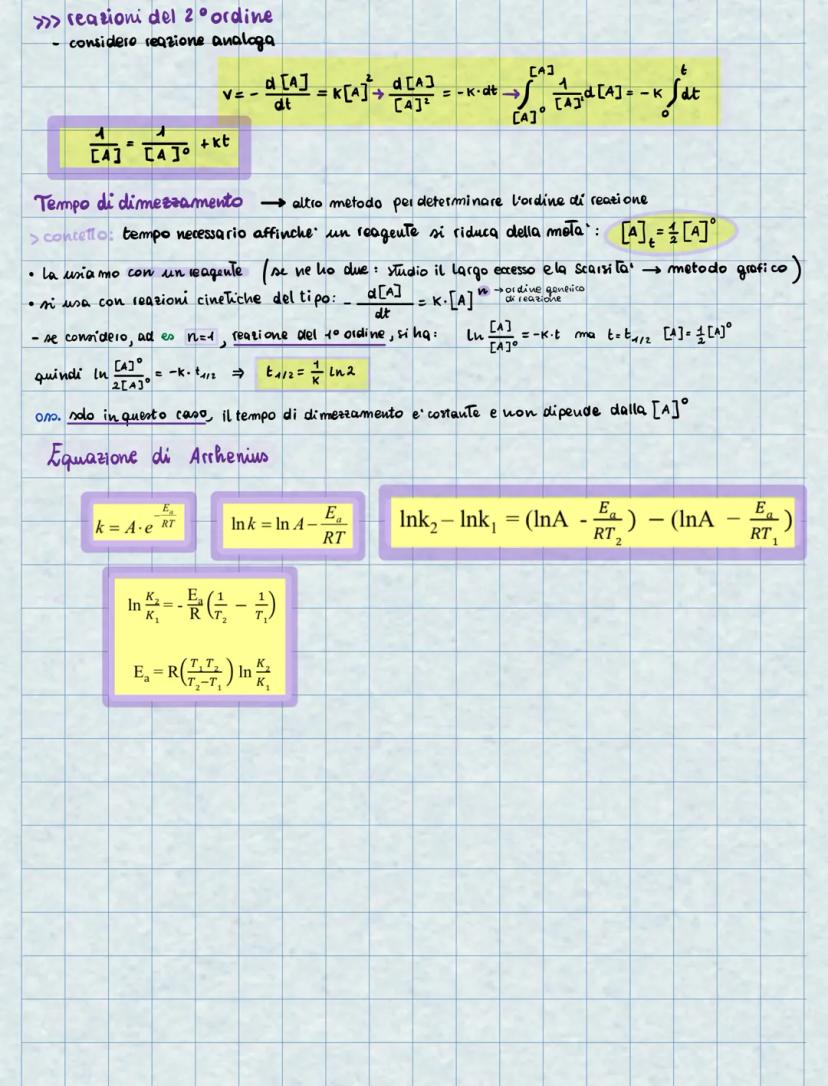 >>> reazioni del 2° ordine
- considero reazione analoga
v = - d[A]/dt = K[A]² → d[A]/[A]² = -K·dt → ∫_{[A]°}^{[A]} 1/[A]² d[A] = -K ∫_0^t dt
1/[A] = 1/[A]° + Kt
Tempo di dimezzamento → altro metodo per determinare l'ordine di reazione
> concetto: tempo necessario affinche' un reagente si riduca della metà: [A]_t = 1/2 [A]°
• La usiamo con un reagente (se ne ho due: studio il largo eccesso e la scarsità → metodo grafico)
• si usa con reazioni cinetiche del tipo: - d[A]/dt = K·[A]^n → ordine generico di reazione
- se considero, ad es n=1, reazione del 1° ordine, si ha: ln [A]/[A]° = -K·t ma t=t_{1/2} [A]=1/2[A]°
quindi ln [A]°/2[A]° = -K·t_{1/2} ⇒ t_{1/2} = 1/K ln2
oss. solo in questo caso, il tempo di dimezzamento e' costante e non dipende dalla [A]°
Equazione di Arrhenius
k = A·e^{-E_a/RT} ln k = ln A - E_a/RT lnk₂ - lnk₁ = (lnA - E_a/RT₂) - (lnA - E_a/RT₁)
ln K₂/K₁ = - E_a/R (1/T₂ - 1/T₁)
E_a = R(T₁T₂/T₂-T₁) ln K₂/K₁